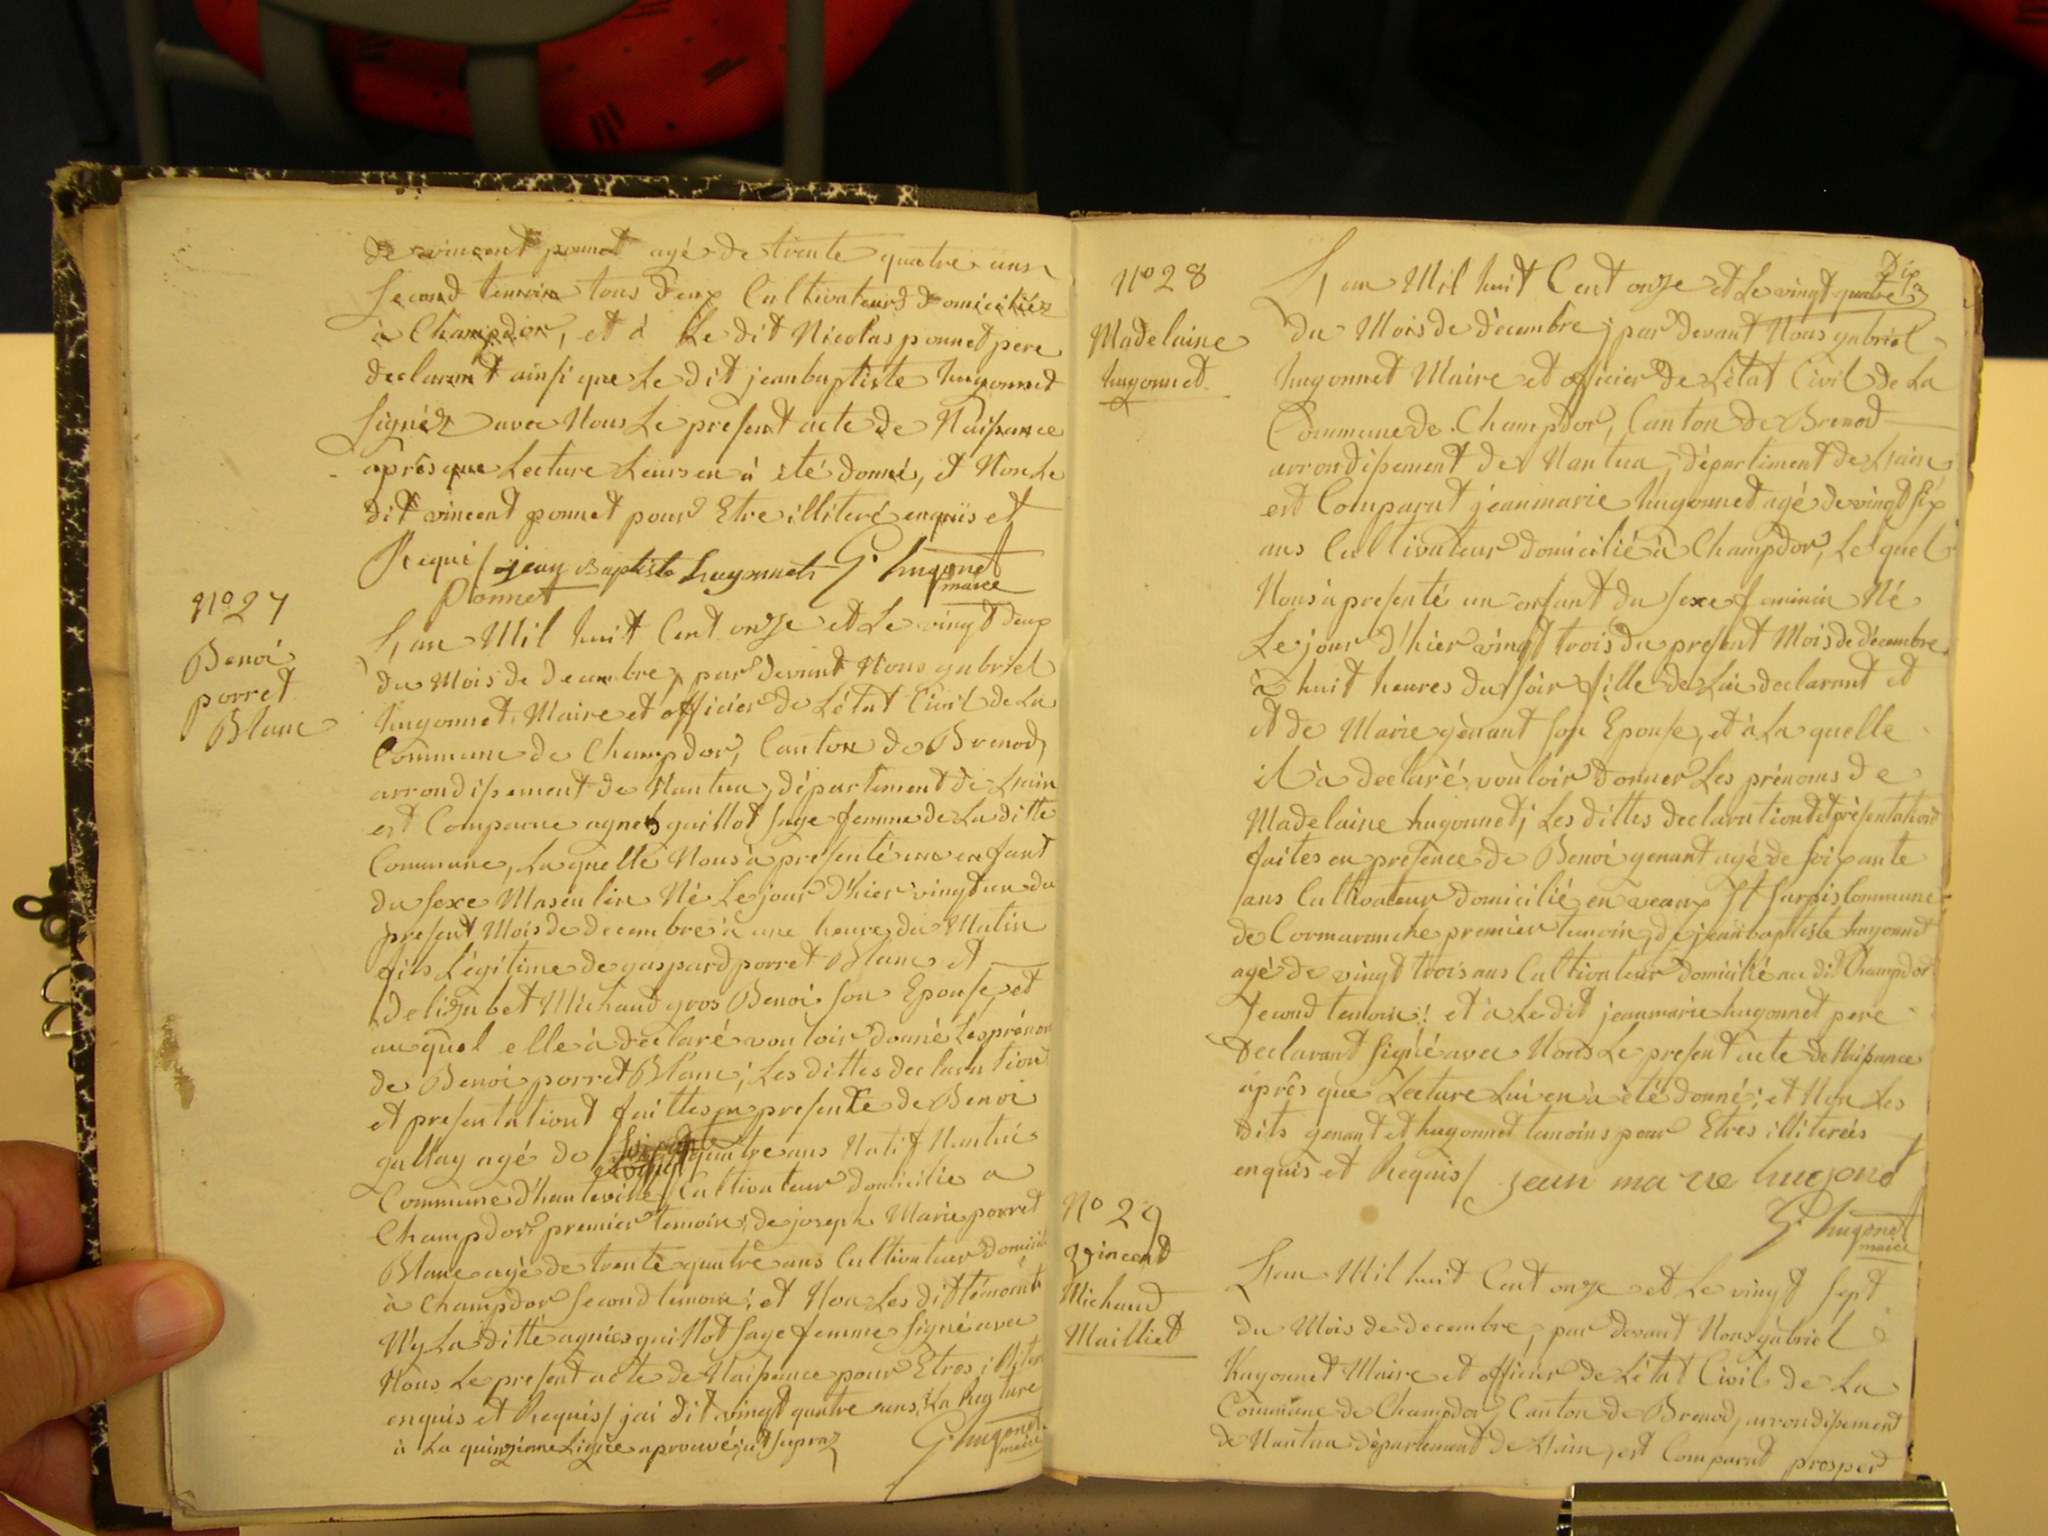 de vincent ponnet agé de trente quatre ans
Second temoin tous deux Cultivateurs domiciliés
à Champdor, et à Le dit Nicolas ponnet pere
declarant ainsi que Le dit jean baptiste hugonnet
signés avec Nous Le present acte de Naissance
après que Lecture Leurs en à été donné, et Non Le
dit vincent ponnet pour Etre illiteré enquis et
Requis / jean Baptiste hugonnet G. hugonet
Ponnet maire
N° 27
Benoi
porret
Blanc
L'an Mil huit Cent onze et Le vingt deux
du Mois de decembre, par devant Nous gabriel
hugonnet, Maire et officier de L'état Civil de La
Commune de Champdor, Canton de Brenod,
arrondissement de Nantua, département de L'ain
est Comparue agnes guillot sage femme de La ditte
Commune, Laquelle Nous à presenté un enfant
du sexe Masculin Né Le jour d'hier vingt un du
present Mois de decembre à une heure du Matin
fils Légitime de gaspard porret Blanc et
Delizabet Michaud gros Benoi son Epouse, et
auquel elle à declaré vouloir donné Les prénom
de Benoi porret Blanc; Les dittes declaration
et presentationt faittes en presence de Benoi
gallay agé de quatre ans Natif Nantui
Commune d'hauteville / Cultivateur domicilié a
Champdor premier temoin; de joseph Marie porret
Blanc agé de trente quatre ans Cultivateur domicil
à Champdor second temoin; et Non Les dit témoint
N'y La ditte agnies guillot sage femme signé avec
Nous Le present acte de Naissance pour Etres illiteré
enquis et Requis / jai dit vingt quatre ans, La Rupture
à La quinzieme Ligne aprouvé; ut supra
G. hugonet
maire
dix
N° 28
Madelaine
hugonnet
L'an Mil huit Cent onze et Le vingt quatre
du Mois de décembre; par devant Nous gabriel
hugonnet Maire et officier de L'état Civil de La
Commune de Champdor, Canton de Brenod
arrondissement de Nantua, département de L'ain
est Comparut jean marie hugonnet agé de vingt six
ans Cultivateur domicilié à Champdor, Le quel
Nous à presenté un enfant du sexe feminin Né
Le jour d'hier vingt trois du present Mois de décembre
à huit heures du soir fille de Lui declarant et
et de Marie genant son Epouse, et à La quelle
il à declaré vouloir donner Les prénoms de
Madelaine hugonnet; Les dittes declarationt et présentationt
faites en presence de Benoi genant agé de soixante
ans Cultivateur domicilié en veaux St surpis Commune
de Cormaranche premier temoin, de jean baptiste hugonnet
agé de vingt trois ans Cultivateur domicilié au dit Champdor
second temoin; et à Le dit jean marie hugonnet pere
declarant signé avec Nous Le present acte de Naissance
après que Lecture Lui en à été donné; et Non Les
dits genant et hugonnet temoins pour Etres illiterés
enquis et Requis / jean marie hugonet
G. hugonet
maire
N° 29
Vincent
Michaud
Mailliet
L'an Mil huit Cent onze et Le vingt sept
du Mois de decembre, par devant Nous gabriel
hugonnet Maire et officier de L'état Civil de La
Commune de Champdor, Canton de Brenod, arrondissement
de Nantua département de L'ain, est Comparut prosper